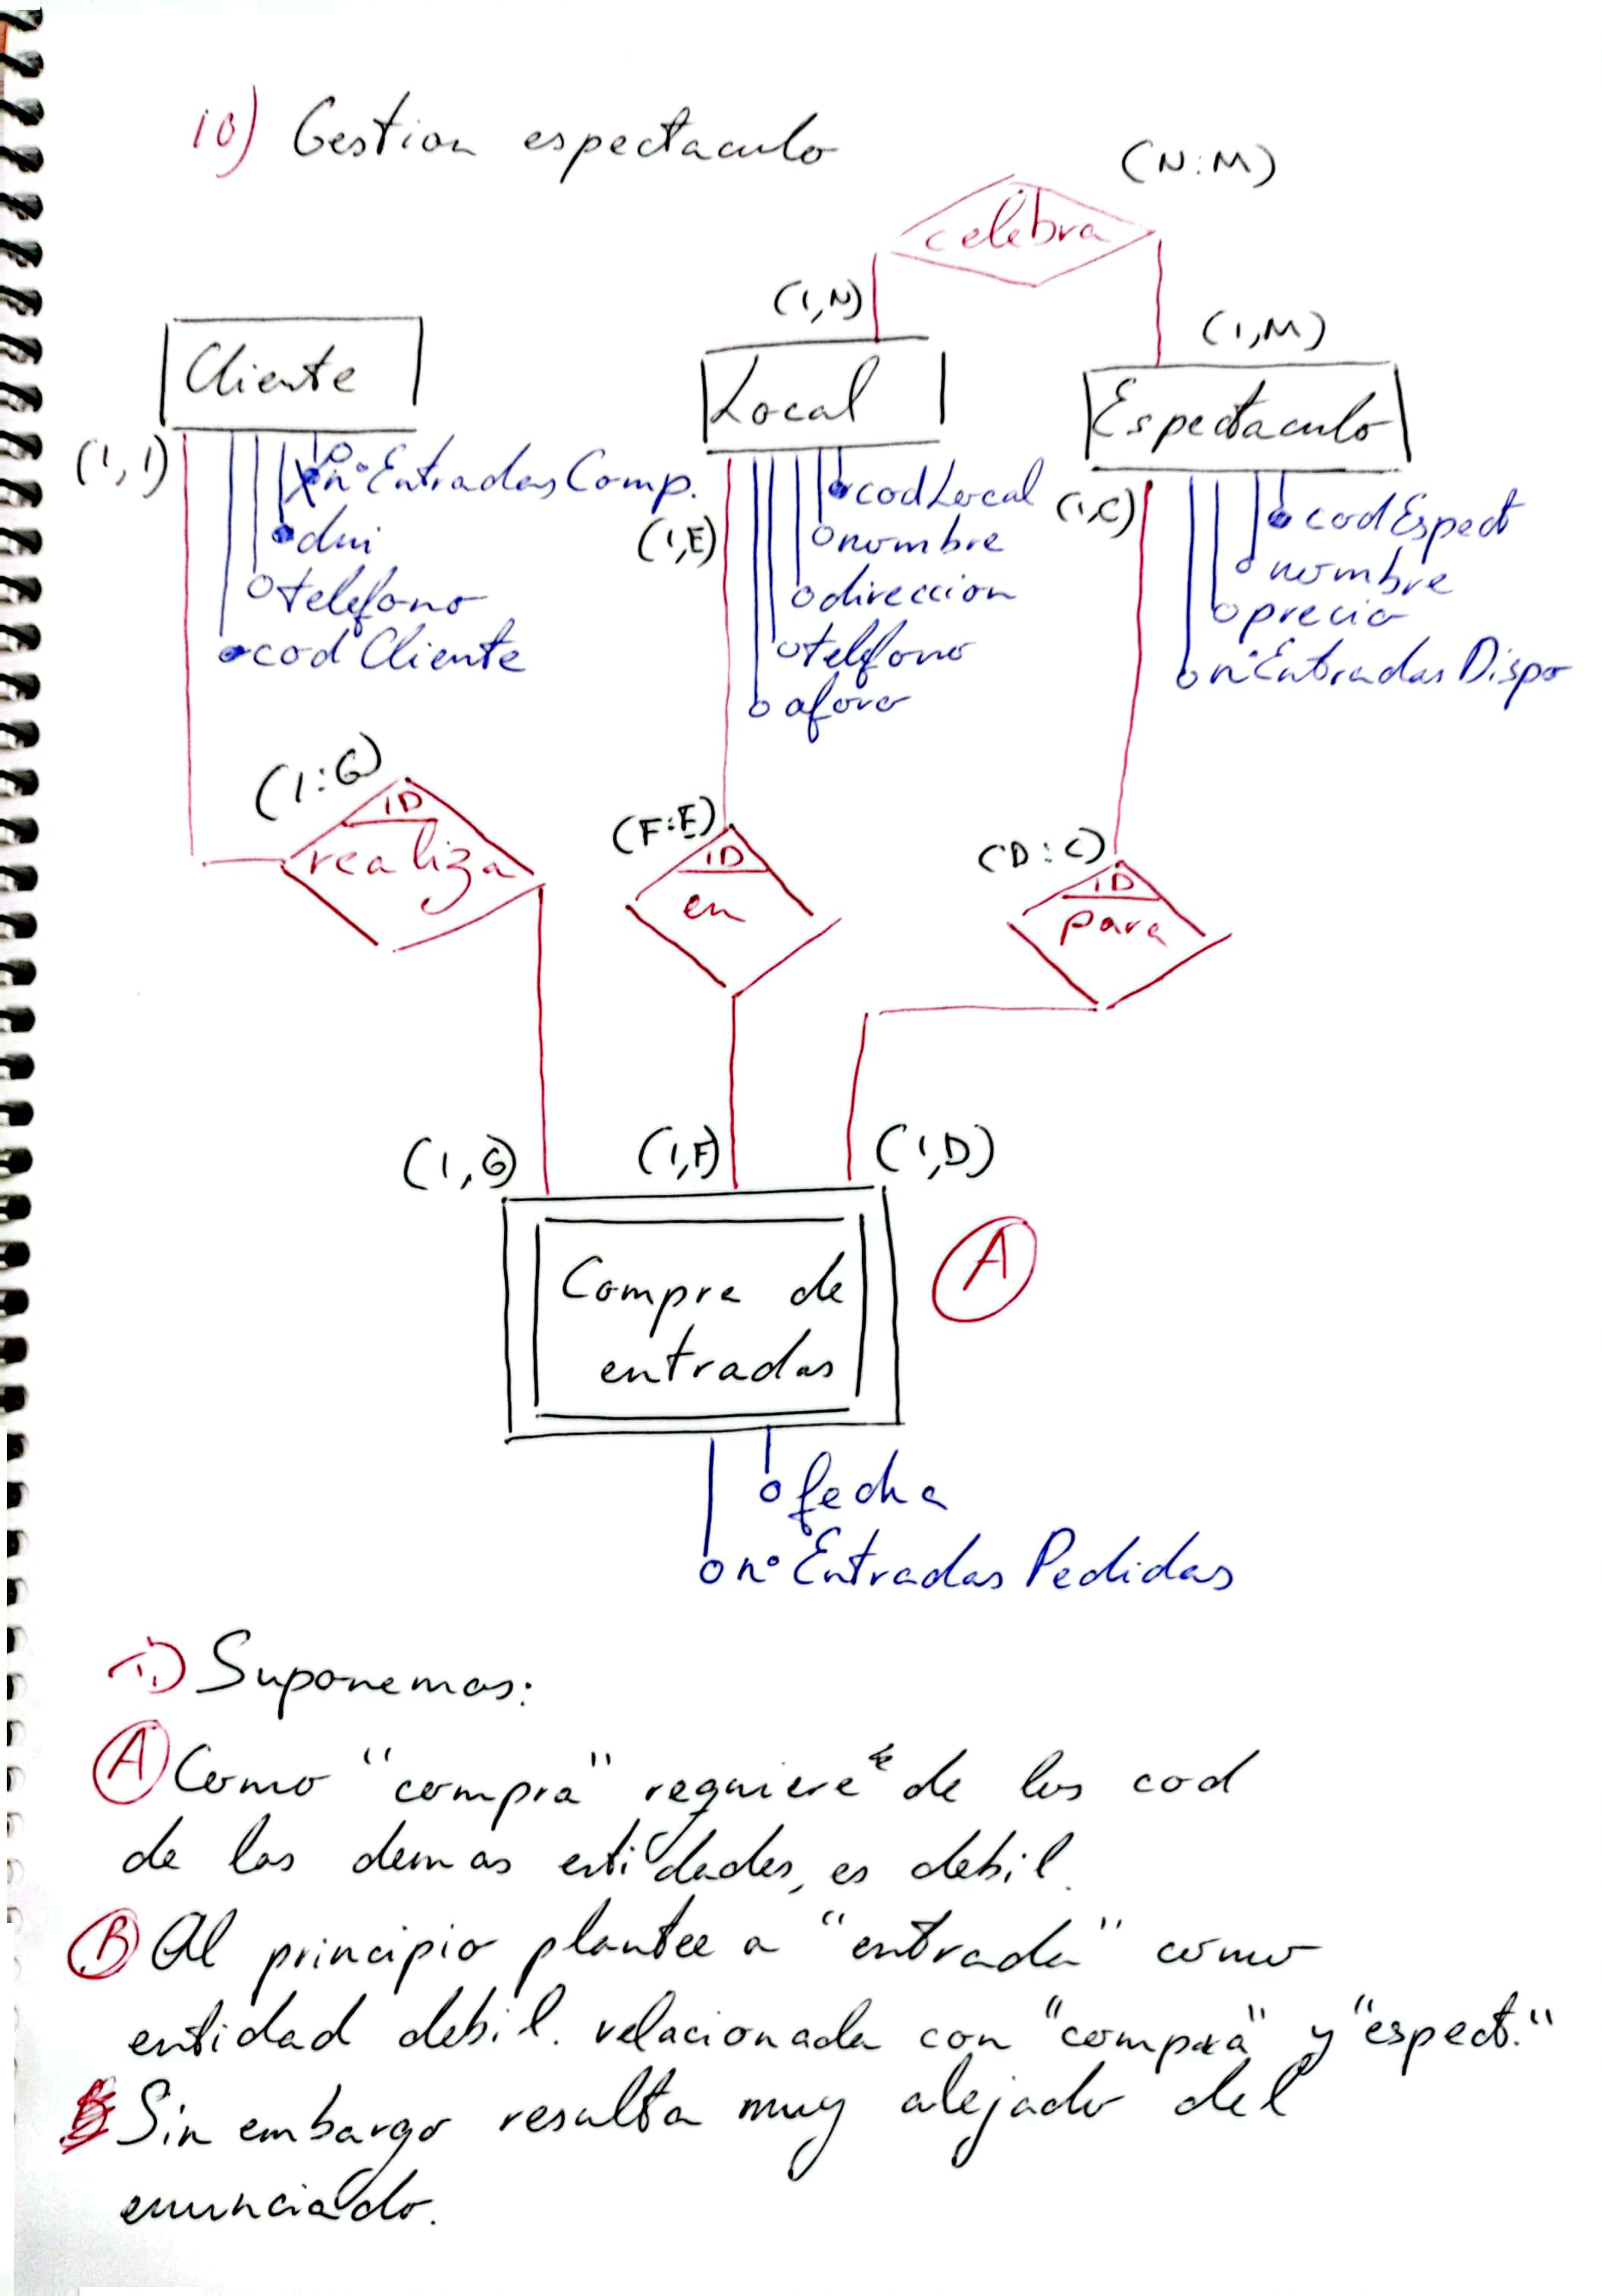 10) Gestion espectaculo
(N:M)
celebra
(1,N)
(1,M)
Cliente
Local
Espectaculo
(1,1)
nºEntradasComp.
dni
telefono
codCliente
(1,E)
codLocal
nombre
direccion
telefono
aforo
(1,C)
codEspect
nombre
precio
nºEntradasDispo
(1:G)
ID
realiza
(F:E)
ID
en
(D:C)
ID
para
(1,G)
(1,F)
(1,D)
Compra de
entradas
A
fecha
nº Entradas Pedidas
1) Suponemos:
A Como "compra" requiere de los cod
de las demas entidades, es debil.
B Al principio plantee a "entrada" como
entidad debil. relacionada con "compra" y "espect."
Sin embargo resulta muy alejado del
enunciado.